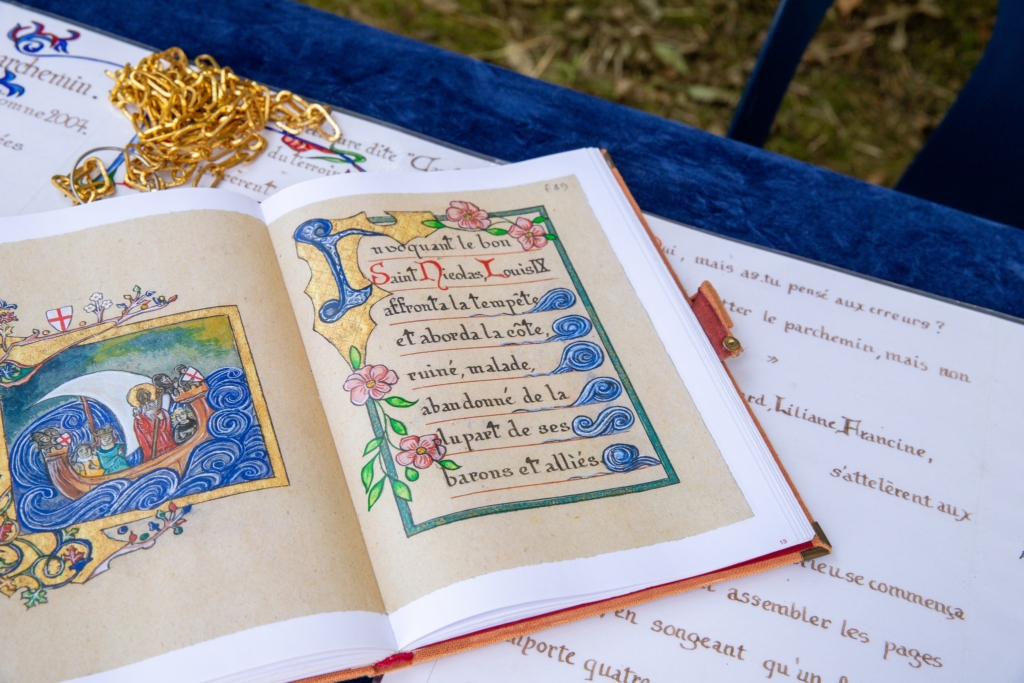 archemin.
omne 2007.
ées
dite "
du terroir
rent
f 49
Invoquant le bon
Saint Nicolas, Louis IX
affronta la tempête
et aborda la côte,
ruiné, malade,
abandonné de la
plupart de ses
barons et alliés.
19
ui, mais as.tu pensé aux erreurs ?
tter le parchemin, mais non
"
ard, Liliane, Francine,
s'attelèrent aux
ieuse commença
t assembler les pages
, en songeant qu'un
mporte quatre